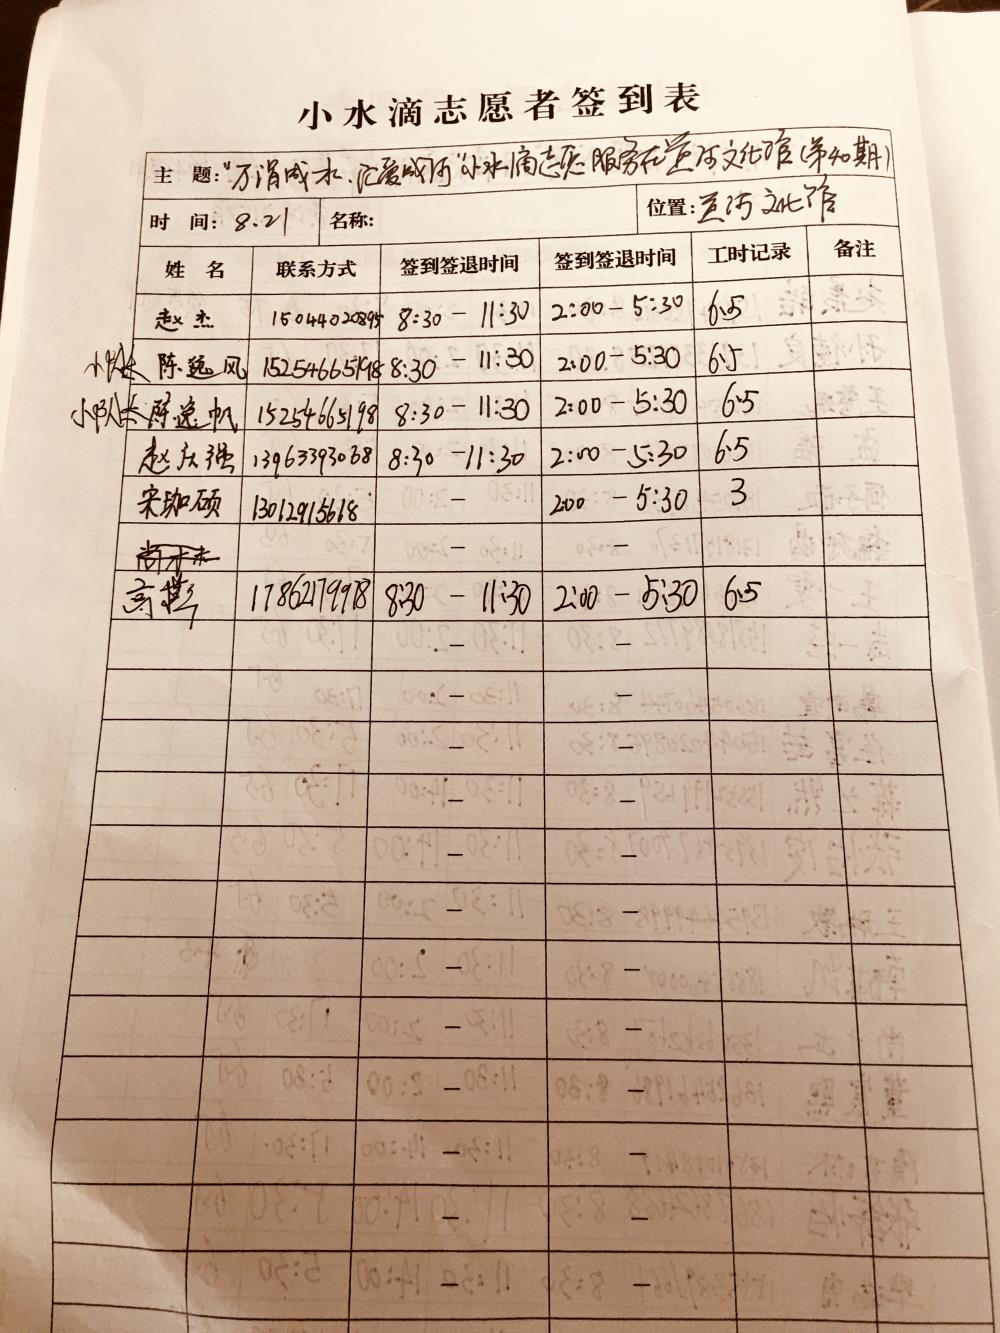 小水滴志愿者签到表
主 题：“万涓成水、汇爱成河”小水滴志愿服务在 河文化馆（第40期）
时 间：8.21 名称： 位置： 河文化馆
姓 名 联系方式 签到签退时间 签到签退时间 工时记录 备注
赵杰 15044020895 8:30 - 11:30 2:00 - 5:30 6.5
小队长 陈逸风 15254665198 8:30 - 11:30 2:00 - 5:30 6.5
小队长 陈逸帆 15254665198 8:30 - 11:30 2:00 - 5:30 6.5
赵庆强 13963393068 8:30 - 11:30 2:00 - 5:30 6.5
宋珈硕 13012915618 - 2:00 - 5:30 3
- -
高 17862179918 8:30 - 11:30 2:00 - 5:30 6.5
- -
- -
- -
- -
- -
- -
- -
- -
- -
- -
- -
- -